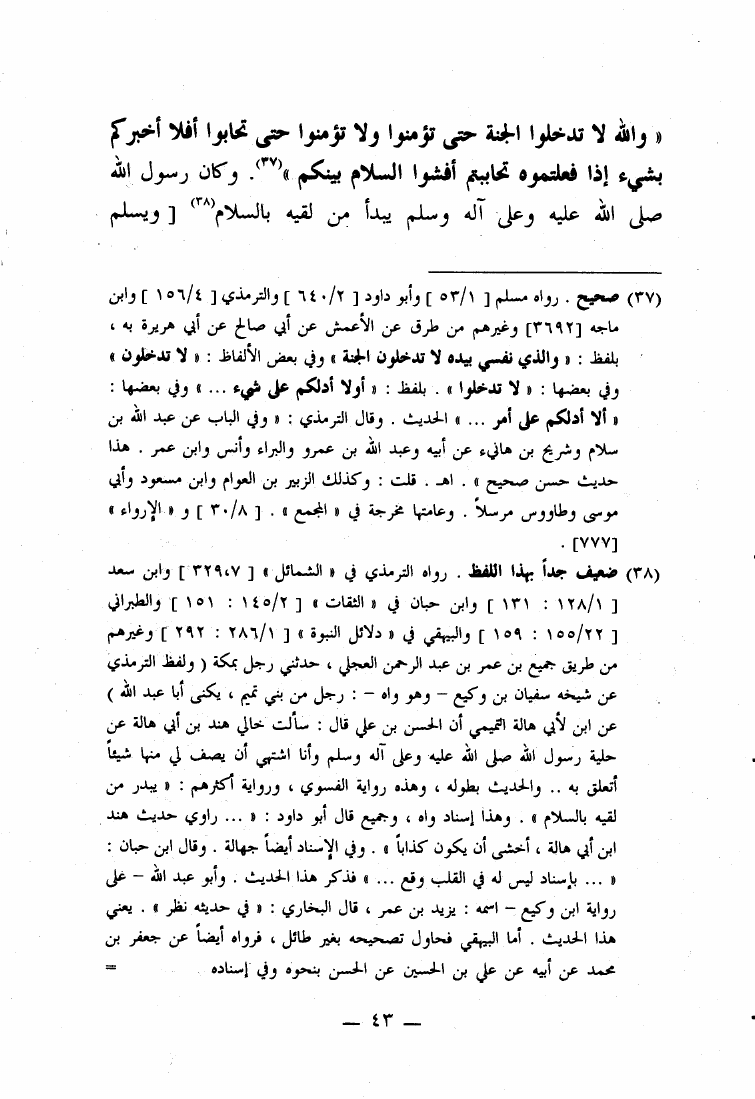 « والله لا تدخلوا الجنة حتى تؤمنوا ولا تؤمنوا حتى تحابوا أفلا أخبركم
بشيء إذا فعلتموه تحاببتم أفشوا السلام بينكم »(٣٧). وكان رسول الله
صلى الله عليه وعلى آله وسلم يبدأ من لقيه بالسلام(٣٨) [ ويسلم
(٣٧) صحيح . رواه مسلم [ ٥٣/١ ] وأبو داود [ ٦٤٠/٢ ] والترمذي [ ١٥٦/٤ ] وابن
ماجه [٣٦٩٢] وغيرهم من طرق عن الأعمش عن أبي صالح عن أبي هريرة به ،
بلفظ : « والذي نفسي بيده لا تدخلون الجنة » وفي بعض الألفاظ : « لا تدخلون »
وفي بعضها : « لا تدخلوا » . بلفظ : « أولا أدلكم على شيء ... » وفي بعضها :
« ألا أدلكم على أمر ... » الحديث . وقال الترمذي : « وفي الباب عن عبد الله بن
سلام وشريح بن هانيء عن أبيه وعبد الله بن عمرو والبراء وأنس وابن عمر . هذا
حديث حسن صحيح » . اهـ . قلت : وكذلك الزبير بن العوام وابن مسعود وأبي
موسى وطاووس مرسلاً . وعامتها مخرجة في « المجمع » . [ ٣٠/٨ ] و « الإرواء »
[٧٧٧] .
(٣٨) ضعيف جداً بهذا اللفظ . رواه الترمذي في « الشمائل » [ ٣٢٩،٧ ] وابن سعد
[ ١٢٨/١ : ١٣١ ] وابن حبان في « الثقات » [ ١٤٥/٢ : ١٥١ ] والطبراني
[ ١٥٥/٢٢ : ١٥٩ ] والبيهقي في « دلائل النبوة » [ ٢٨٦/١ : ٢٩٢ ] وغيرهم
من طريق جميع بن عمر بن عبد الرحمن العجلي ، حدثني رجل بمكة ( ولفظ الترمذي
عن شيخه سفيان بن وكيع – وهو واه – : رجل من بني تميم ، يكنى أبا عبد الله )
عن ابن لأبي هالة التميمي أن الحسن بن علي قال : سألت خالي هند بن أبي هالة عن
حلية رسول الله صلى الله عليه وعلى آله وسلم وأنا اشتهي أن يصف لي منها شيئاً
أتعلق به .. والحديث بطوله ، وهذه رواية الفسوي ، ورواية أكثرهم : « يبدر من
لقيه بالسلام » . وهذا إسناد واه ، وجميع قال أبو داود : « ... راوي حديث هند
ابن أبي هالة ، أخشى أن يكون كذاباً » . وفي الإسناد أيضاً جهالة . وقال ابن حبان :
« ... بإسناد ليس له في القلب وقع ... » فذكر هذا الحديث . وأبو عبد الله – على
رواية ابن وكيع – اسمه : يزيد بن عمر ، قال البخاري : « في حديثه نظر » . يعني
هذا الحديث . أما البيهقي فحاول تصحيحه بغير طائل ، فرواه أيضاً عن جعفر بن
محمد عن أبيه عن علي بن الحسين عن الحسن بنحوه وفي إسناده =
— ٤٣ —